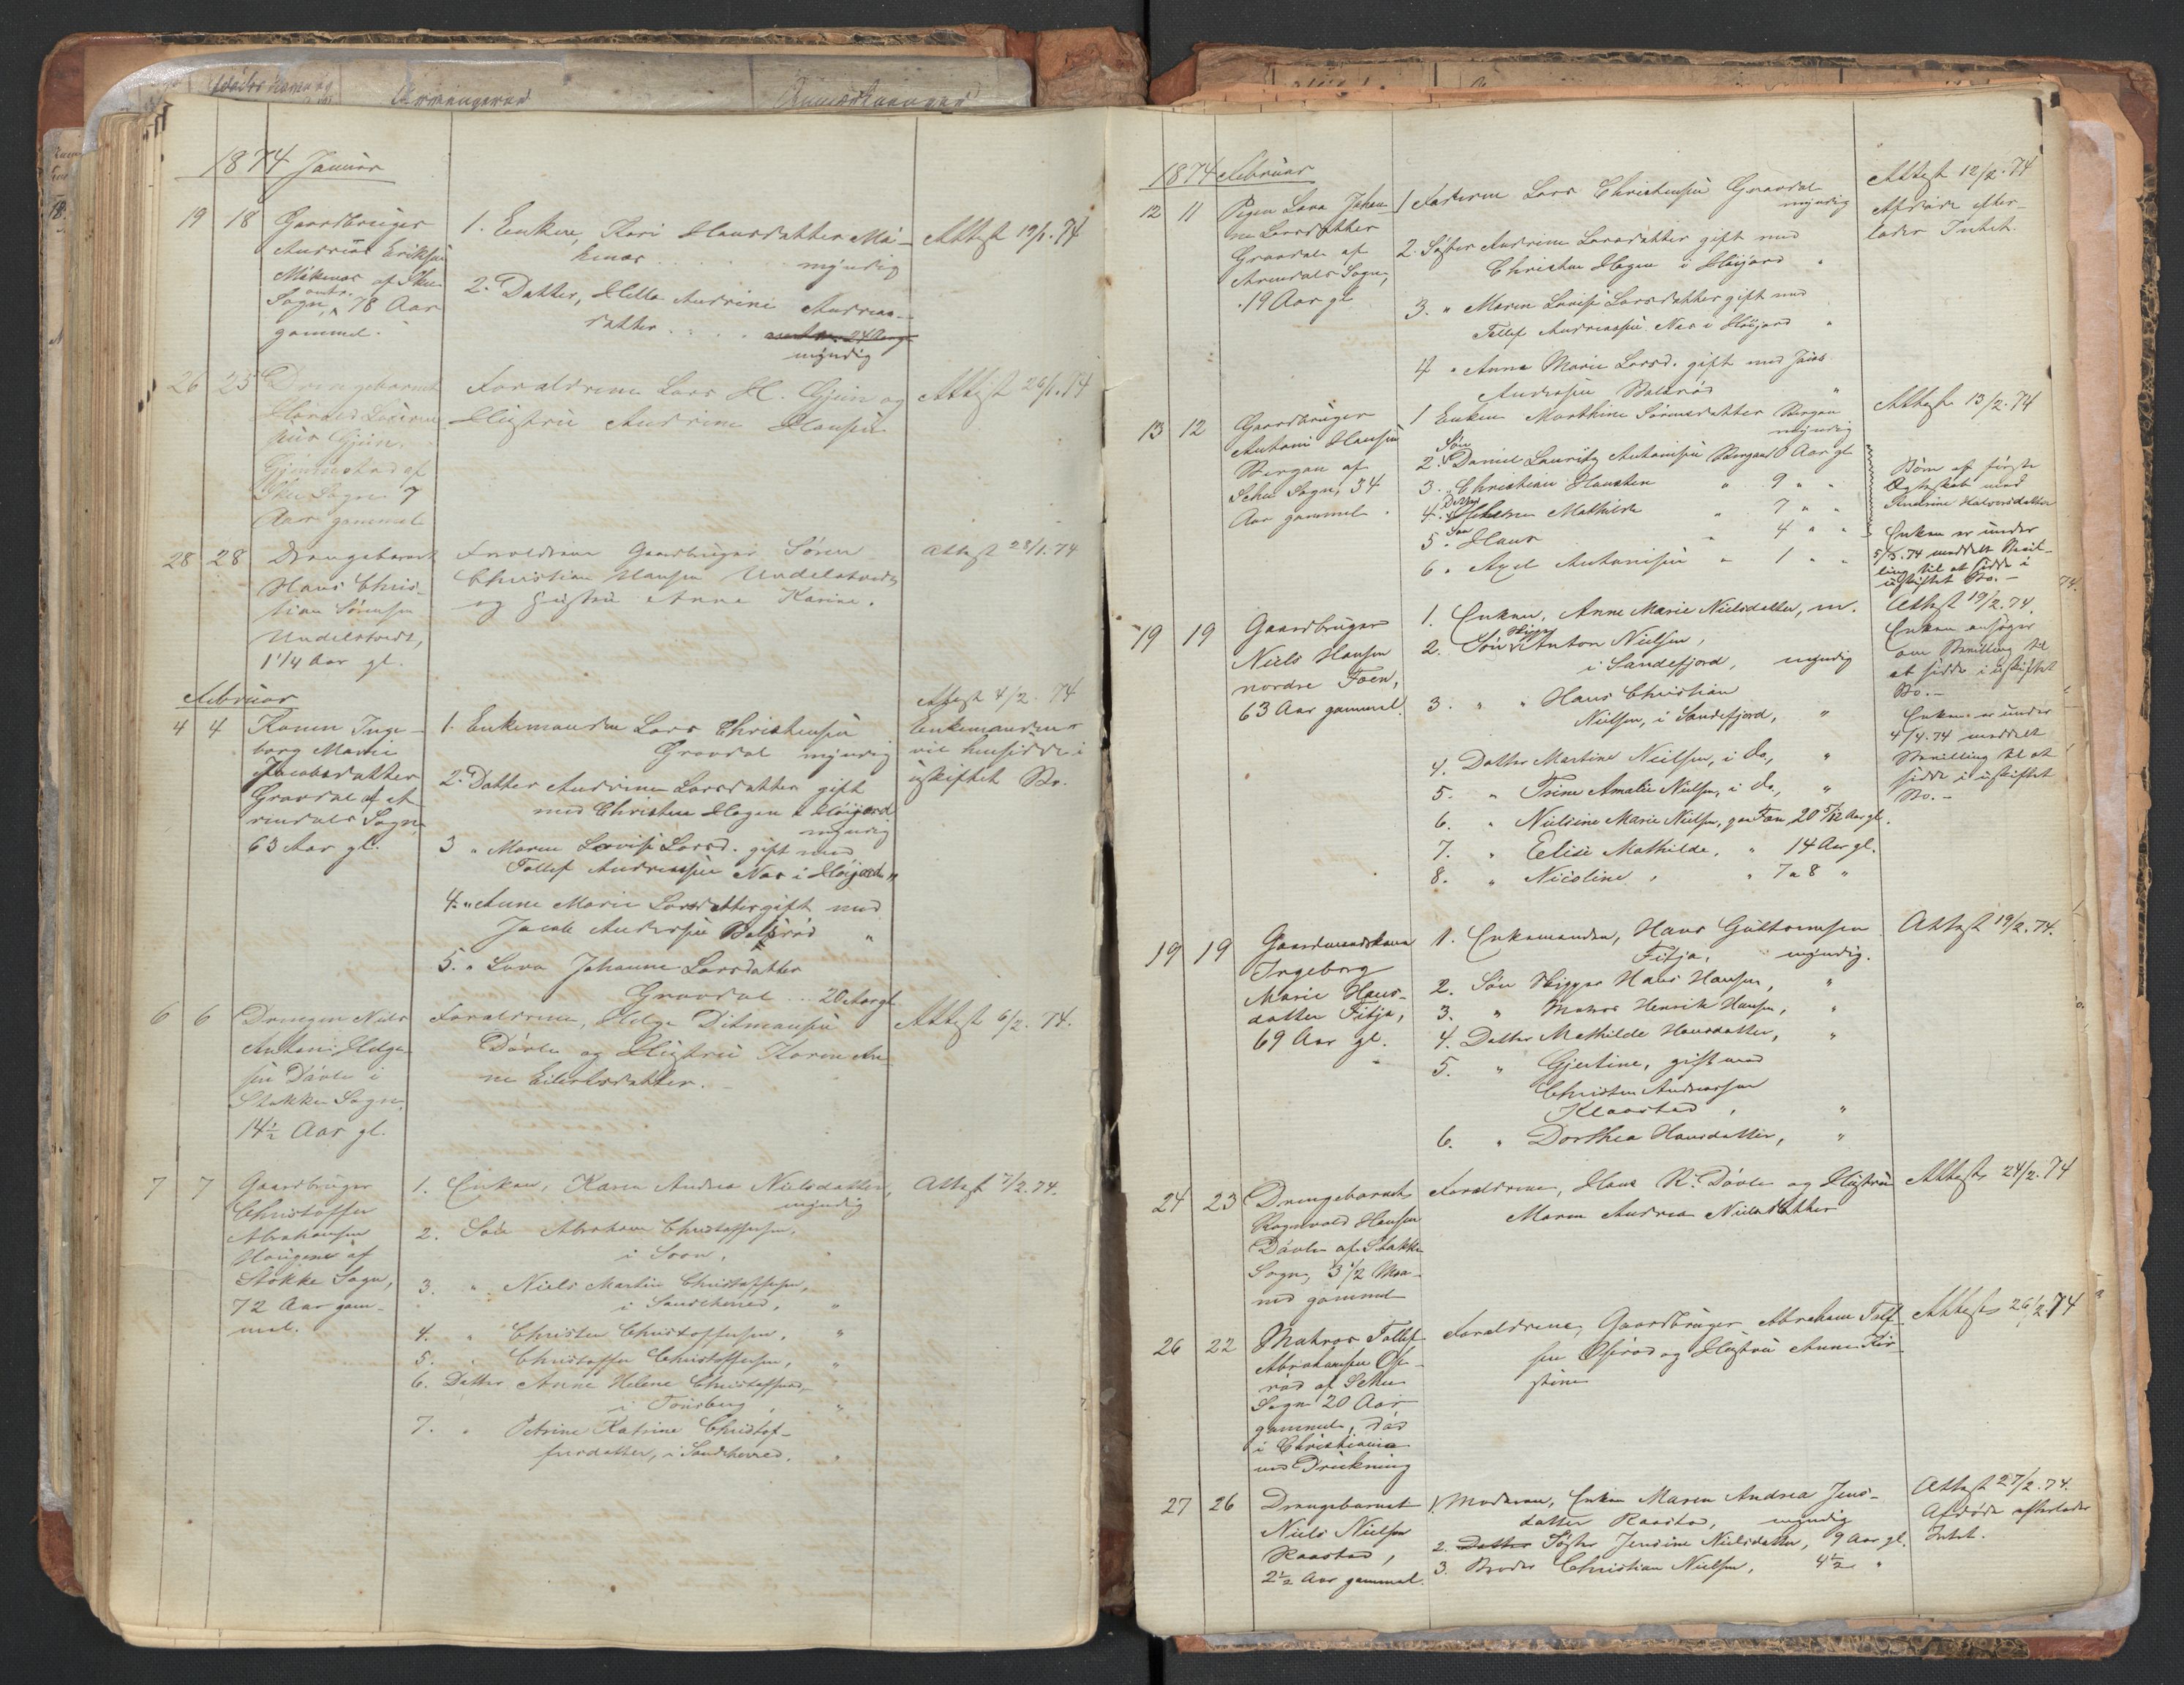 1874 Januar
19 18 Gaardbruger
Andreas Eriksen
Mákenæs af Sku
Sogn, omtr. 78 Aar
gammel.
1. Enken, Kari Hansdatter Má-
kenæs . . . . myndig
2. Datter, Helle Andrine Andreas-
datter . . . .
myndig
Attest 19/1. 74
26 23 Drengebarnet
Gjein,
af
Sku Sogn 7
Aar gammel
Forældrene Lars H. Gjein og
Hustru Andrine Hansen
Attest 26/1. 74
28 28 Drengebarnet
Hans Chris-
tian Sørensen
Undelstvedt,
1 1/4 Aar gl.
Forældrene Gaardbruger Søren
Christian Hansen Undelstvedt
og Hustru Anne Karine.
Attest 28/1. 74
Februar
4 4 Konen Inge-
borg Marie
Jacobsdatter
Gravdal af A-
rendals Sogn
63 Aar gl.
1. Enkemanden Lars Christensen
Gravdal myndig
2. Datter Andrine Larsdatter gift
med Christen Hagen i Høijord
myndig
3 " Maren Lovise Larsd. gift med
Tollef Andreassen Næs i Høijord "
4. " Anne Marie Larsdatter gift med
Jacob Andersen Bolsrød "
5. " Lava Johanne Larsdatter
Gravdal . . . 20 Aar gl.
Attest 4/2. 74
Enkemanden
vil hensidde i
uskiftet Bo.
6 6 Drengen Niels
Anton Helge-
sen Dávle i
Stokke Sogn,
14 1/2 Aar gl.
Forældrene, Helge Ditmansen
Dávle og Hustru Karen An-
ne Eilertsdatter.
Attest 6/2. 74.
7 7 Gaardbruger
Christoffer
Abrahamsen
Haugene af
Stokke Sogn,
72 Aar gam-
mel.
1. Enken, Karen Andrea Nielsdatter,
myndig
2. Søn Abraham Christoffersen,
i Soon,
3. " Niels Martin Christoffersen,
i Sandeherred, "
4. " Christen Christoffersen, "
5. " Christoffer Christoffersen, "
6. Datter Anne Helene Christoffersd,
i Tønsberg, "
7. " Petrine Katrine Christof-
fersdatter, i Sandeherred, "
Attest 7/2. 74.
1874 Februar
12 11 Pigen Lava Johan-
ne Larsdatter
Gravdal af
Arendals Sogn,
19 Aar gl
1 Faderen Lars Christensen Gravdal
myndig
2. Søster Andrine Larsdatter gift med
Christen Hagen i Høijord "
3. " Maren Lovise Larsdatter gift med
Tollef Andreassen Næs i Høijord "
4 " Anna Marie Larsd. gift med
Andersen Bolsrød "
Attest 12/2. 74
Afdøde efter-
lader Intet.
13 12 Gaardbruger
Antoni Hansen
Bergan af
Schee Sogn, 34
Aar gammel.
1 Enken Marthine Sørensdatter Bergan
myndig
2. Søn Daniel Lauritz Antonisen Bergan 10 Aar gl
3. " Christian Hansten " 9 " "
4. Datter Mathilde " 7 " "
5 Søn Hans " 4 " "
6 " Axel Antonisen " 1 " "
Attest 13/2. 74
Børn af første
Ægteskab med
Andrine Halvorsdatter
Enken er under
5/3. 74 meddelt Bevil-
ling til at sidde i
uskiftet Bo. -
19 19 Gaardbruger
Niels Hansen
nordre Foen,
63 Aar gammel.
1. Enken, Anne Marie Nielsdatter, m.
2. Søn Skipper Anton Nielsen,
i Sandefjord, myndig
3. " " Hans Christian
Nielsen, i Sandefjord, "
4. Datter Martine Nielsen, i do, "
5. " Trine Amalie Nielsen, i do, "
6. " Nielsine Marie Nielsen, paa Foen, 20 5/12 Aar gl.
7. " Elise Mathilde, " 14 Aar gl.
8. " Nicoline, " 7 a 8 "
Attest 19/2. 74.
Enken ansøger
om Bevilling til
at sidde i uskiftet
Bo. -
Enken er under
4/4. 74 meddelt
Bevilling til at
sidde i uskiftet
Bo. -
19 19 Gaardmandskone
Ingeborg
Marie Hans-
datter Fitja,
69 Aar gl.
1. Enkemanden, Hans Guttormsen
Fitja, myndig.
2. Søn Skipper Hans Hansen, "
3. " Matros Henrik Hansen, "
4. Datter Mathilde Hansdatter, "
5. " Gjertine, gift med
Christen Andreassen
Klaastad, "
6. " Dorthea Hansdatter, "
Attest 19/2. 74.
24 23 Drengebarnet
Ragnvald Hansen
Dávle af Stokke
Sogn, 3 1/2 Maa-
ned gammel
Forældrene, Hans R. Dávle og Hustru
Maren Andrea Nielsdatter
Attest 24/2. 74
26 22 Matros Tollef
Abrahamsen Ofe-
rød af Schee
Sogn 20 Aar
gammel, død
i Christiania
ved Drukning
Forældrene, Gaardbruger Abraham Tolf-
sen Oferød og Hustru Anne Kir-
stine
Attest 26/2. 74
27 26 Drengebarnet
Niels Nielsen
Raastad,
2 1/2 Aar gammel.
1. Moderen, Enken Maren Andrea Jens-
datter Raastad, myndig
2. Datter Søster Jensine Nielsdatter, 9 Aar gl.
3. Broder Christian Nielsen, 4 1/2 "
Attest 27/2. 74.
Afdøde efterlader
Intet.